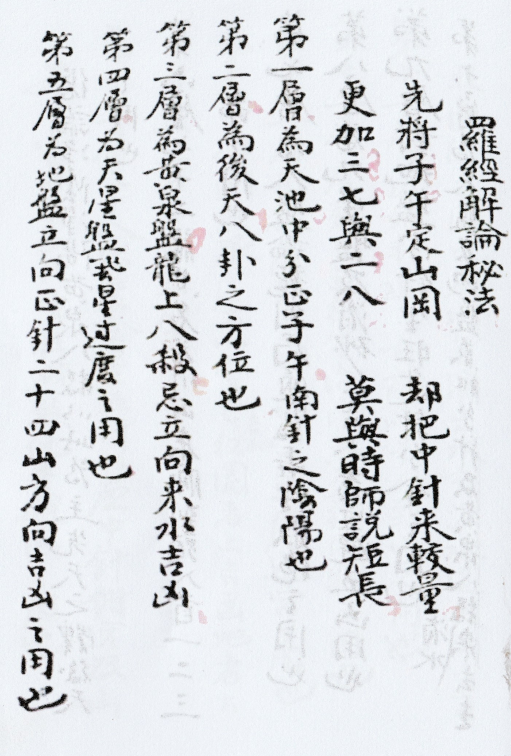 羅經解論秘法
先將子午定山岡 却把中針來較量
更加三七與二八 莫與時師說短長
第一層為天池中分正子午南針之陰陽也
第二層為後天八卦之方位也
第三層為黃泉盤龍上八殺忌立向来水吉凶
第四層为天星盤 星过度之用也
第五層为地盤立向正針二十四山方向吉凶之用也